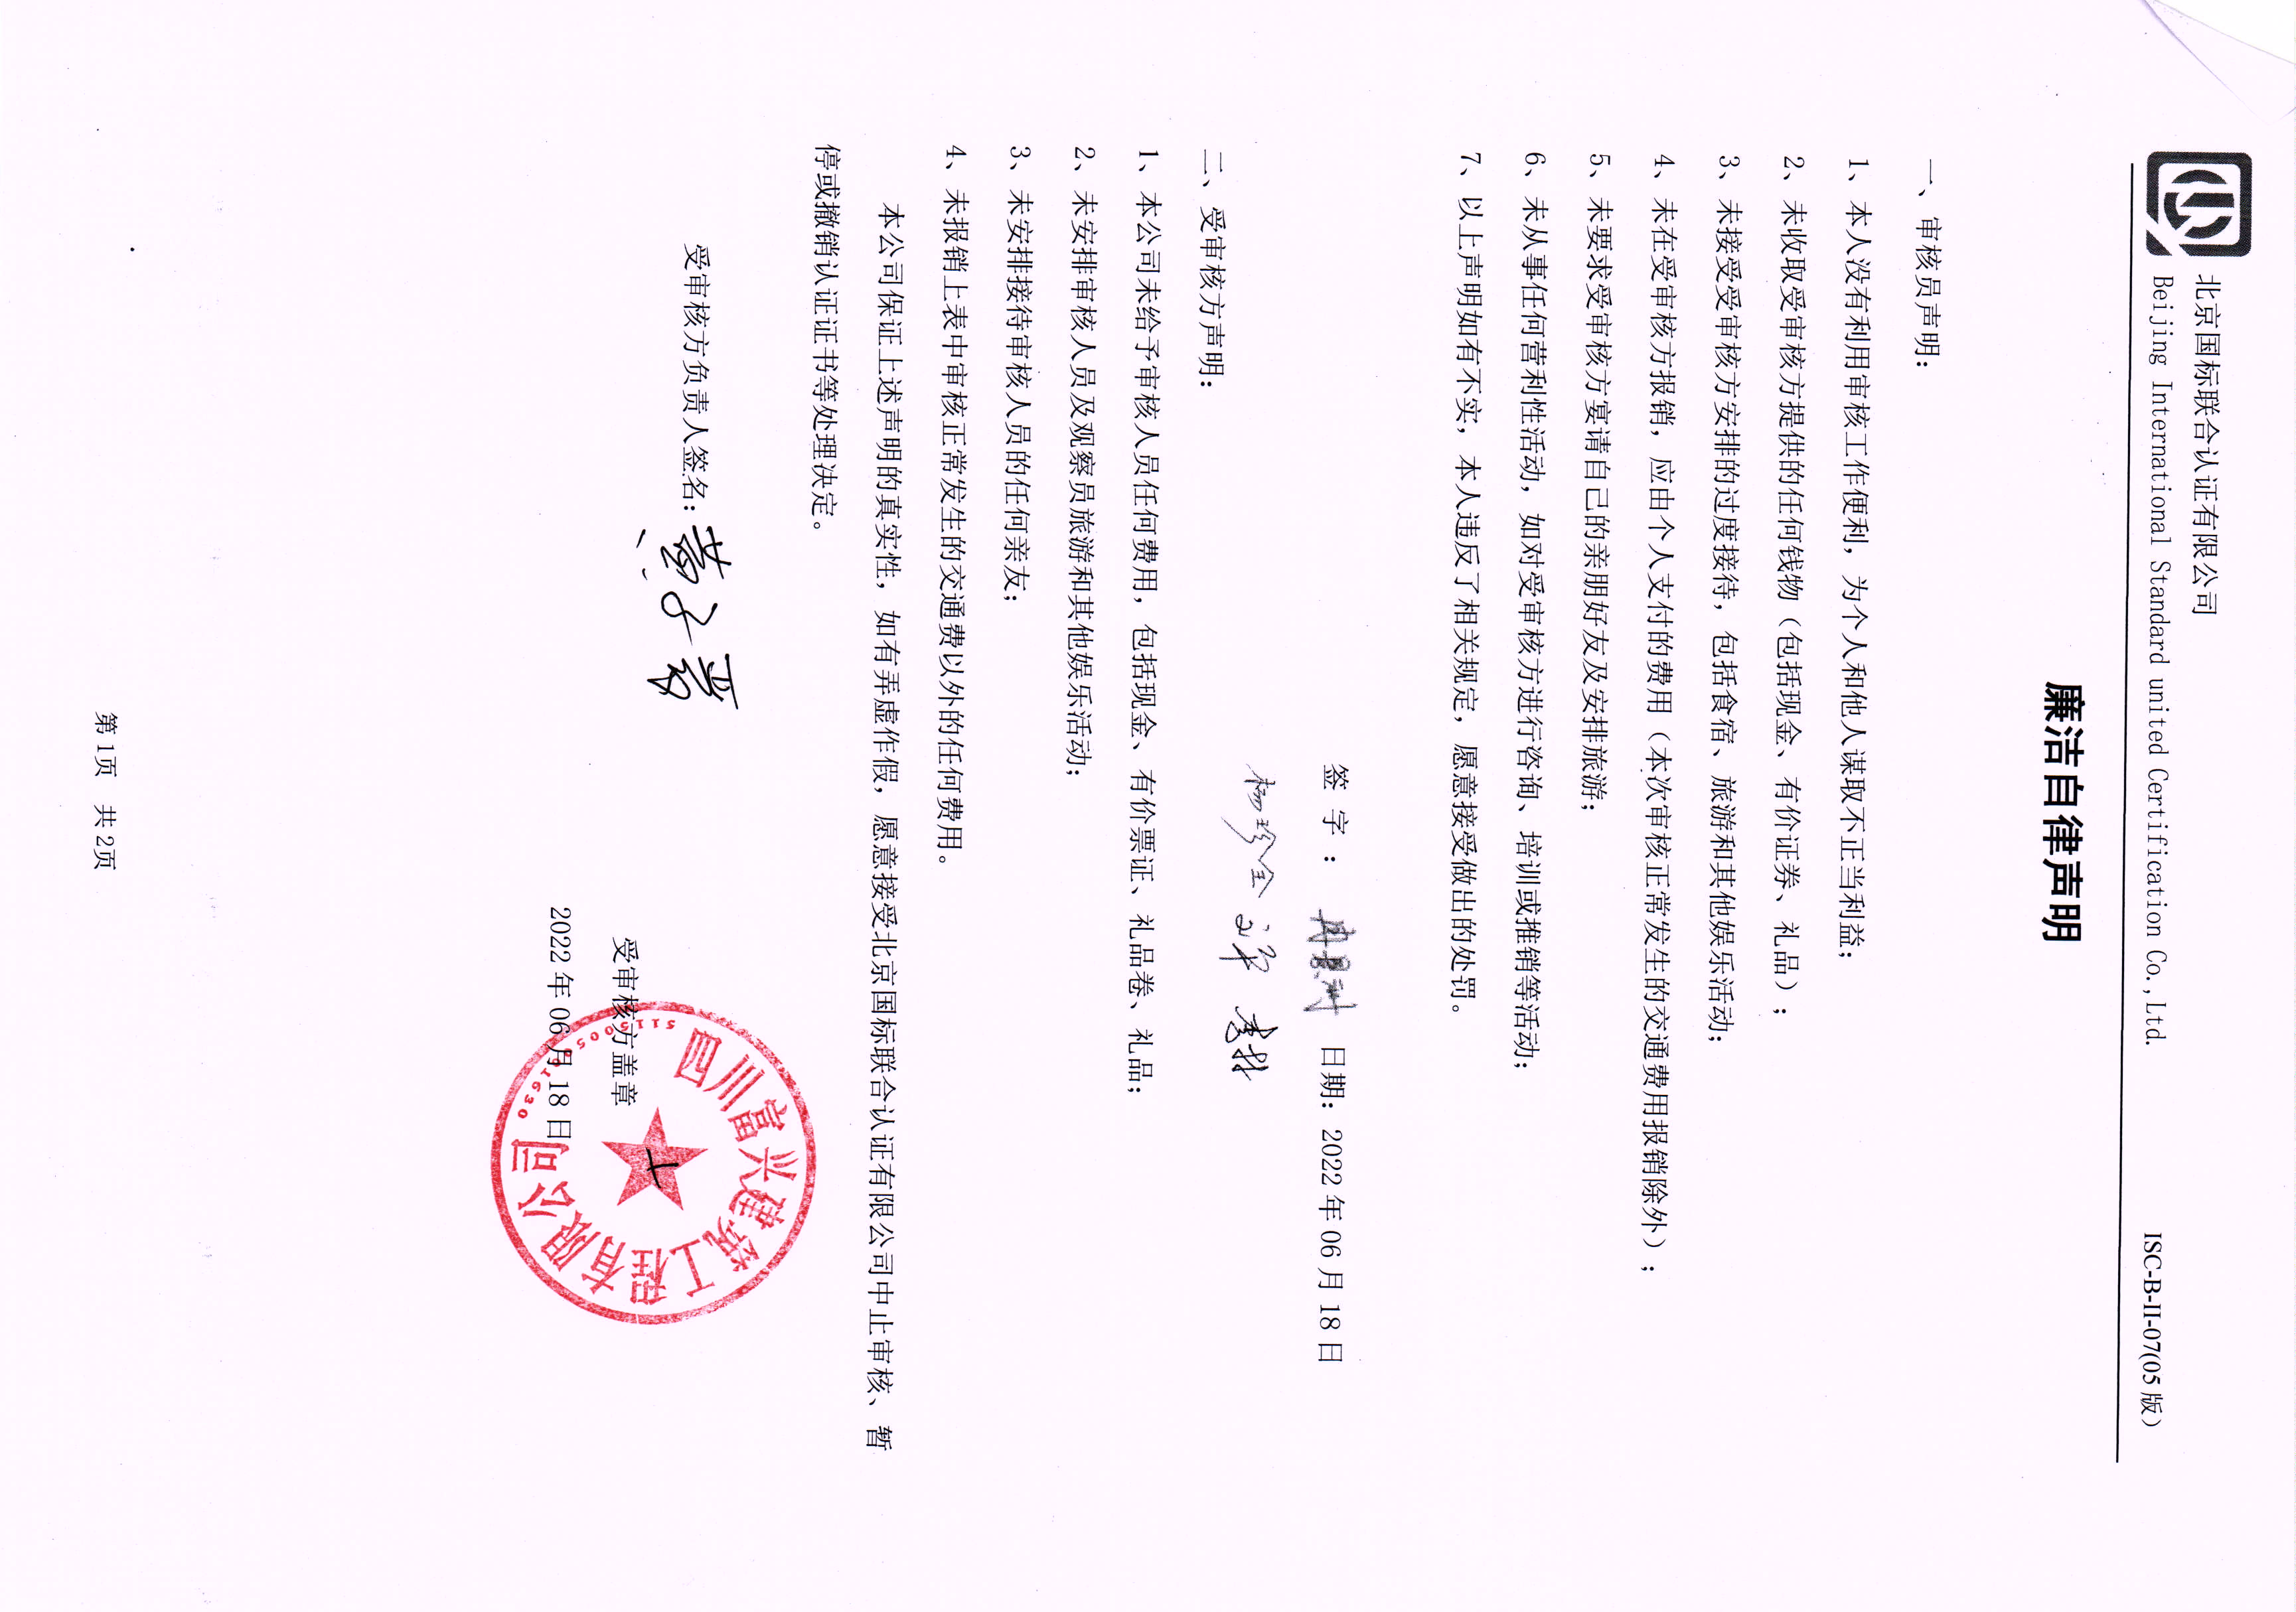 北京国标联合认证有限公司
Beijing International Standard united Certification Co.,Ltd.
ISC-B-II-07(05版)
廉洁自律声明
一、审核员声明:
1、本人没有利用审核工作便利，为个人和他人谋取不正当利益;
2、未收取受审核方提供的任何钱物（包括现金、有价证券、礼品）;
3、未接受受审核方安排的过度接待，包括食宿、旅游和其他娱乐活动;
4、未在受审核方报销，应由个人支付的费用（本次审核正常发生的交通费用报销除外）;
5、未要求受审核方宴请自己的亲朋好友及安排旅游;
6、未从事任何营利性活动，如对受审核方进行咨询、培训或推销等活动;
7、以上声明如有不实，本人违反了相关规定，愿意接受做出的处罚。
签 字 : 日期: 2022 年 06 月 18 日
杨珍全
二、受审核方声明:
1、本公司未给予审核人员任何费用，包括现金、有价票证、礼品卷、礼品;
2、未安排审核人员及观察员旅游和其他娱乐活动;
3、未安排接待审核人员的任何亲友;
4、未报销上表中审核正常发生的交通费以外的任何费用。
本公司保证上述声明的真实性，如有弄虚作假，愿意接受北京国标联合认证有限公司中止审核、暂
停或撤销认证证书等处理决定。
受审核方负责人签名:
受审核方盖章
2022 年 06 月 18 日
四川富兴建筑工程有限公司
第1页 共2页